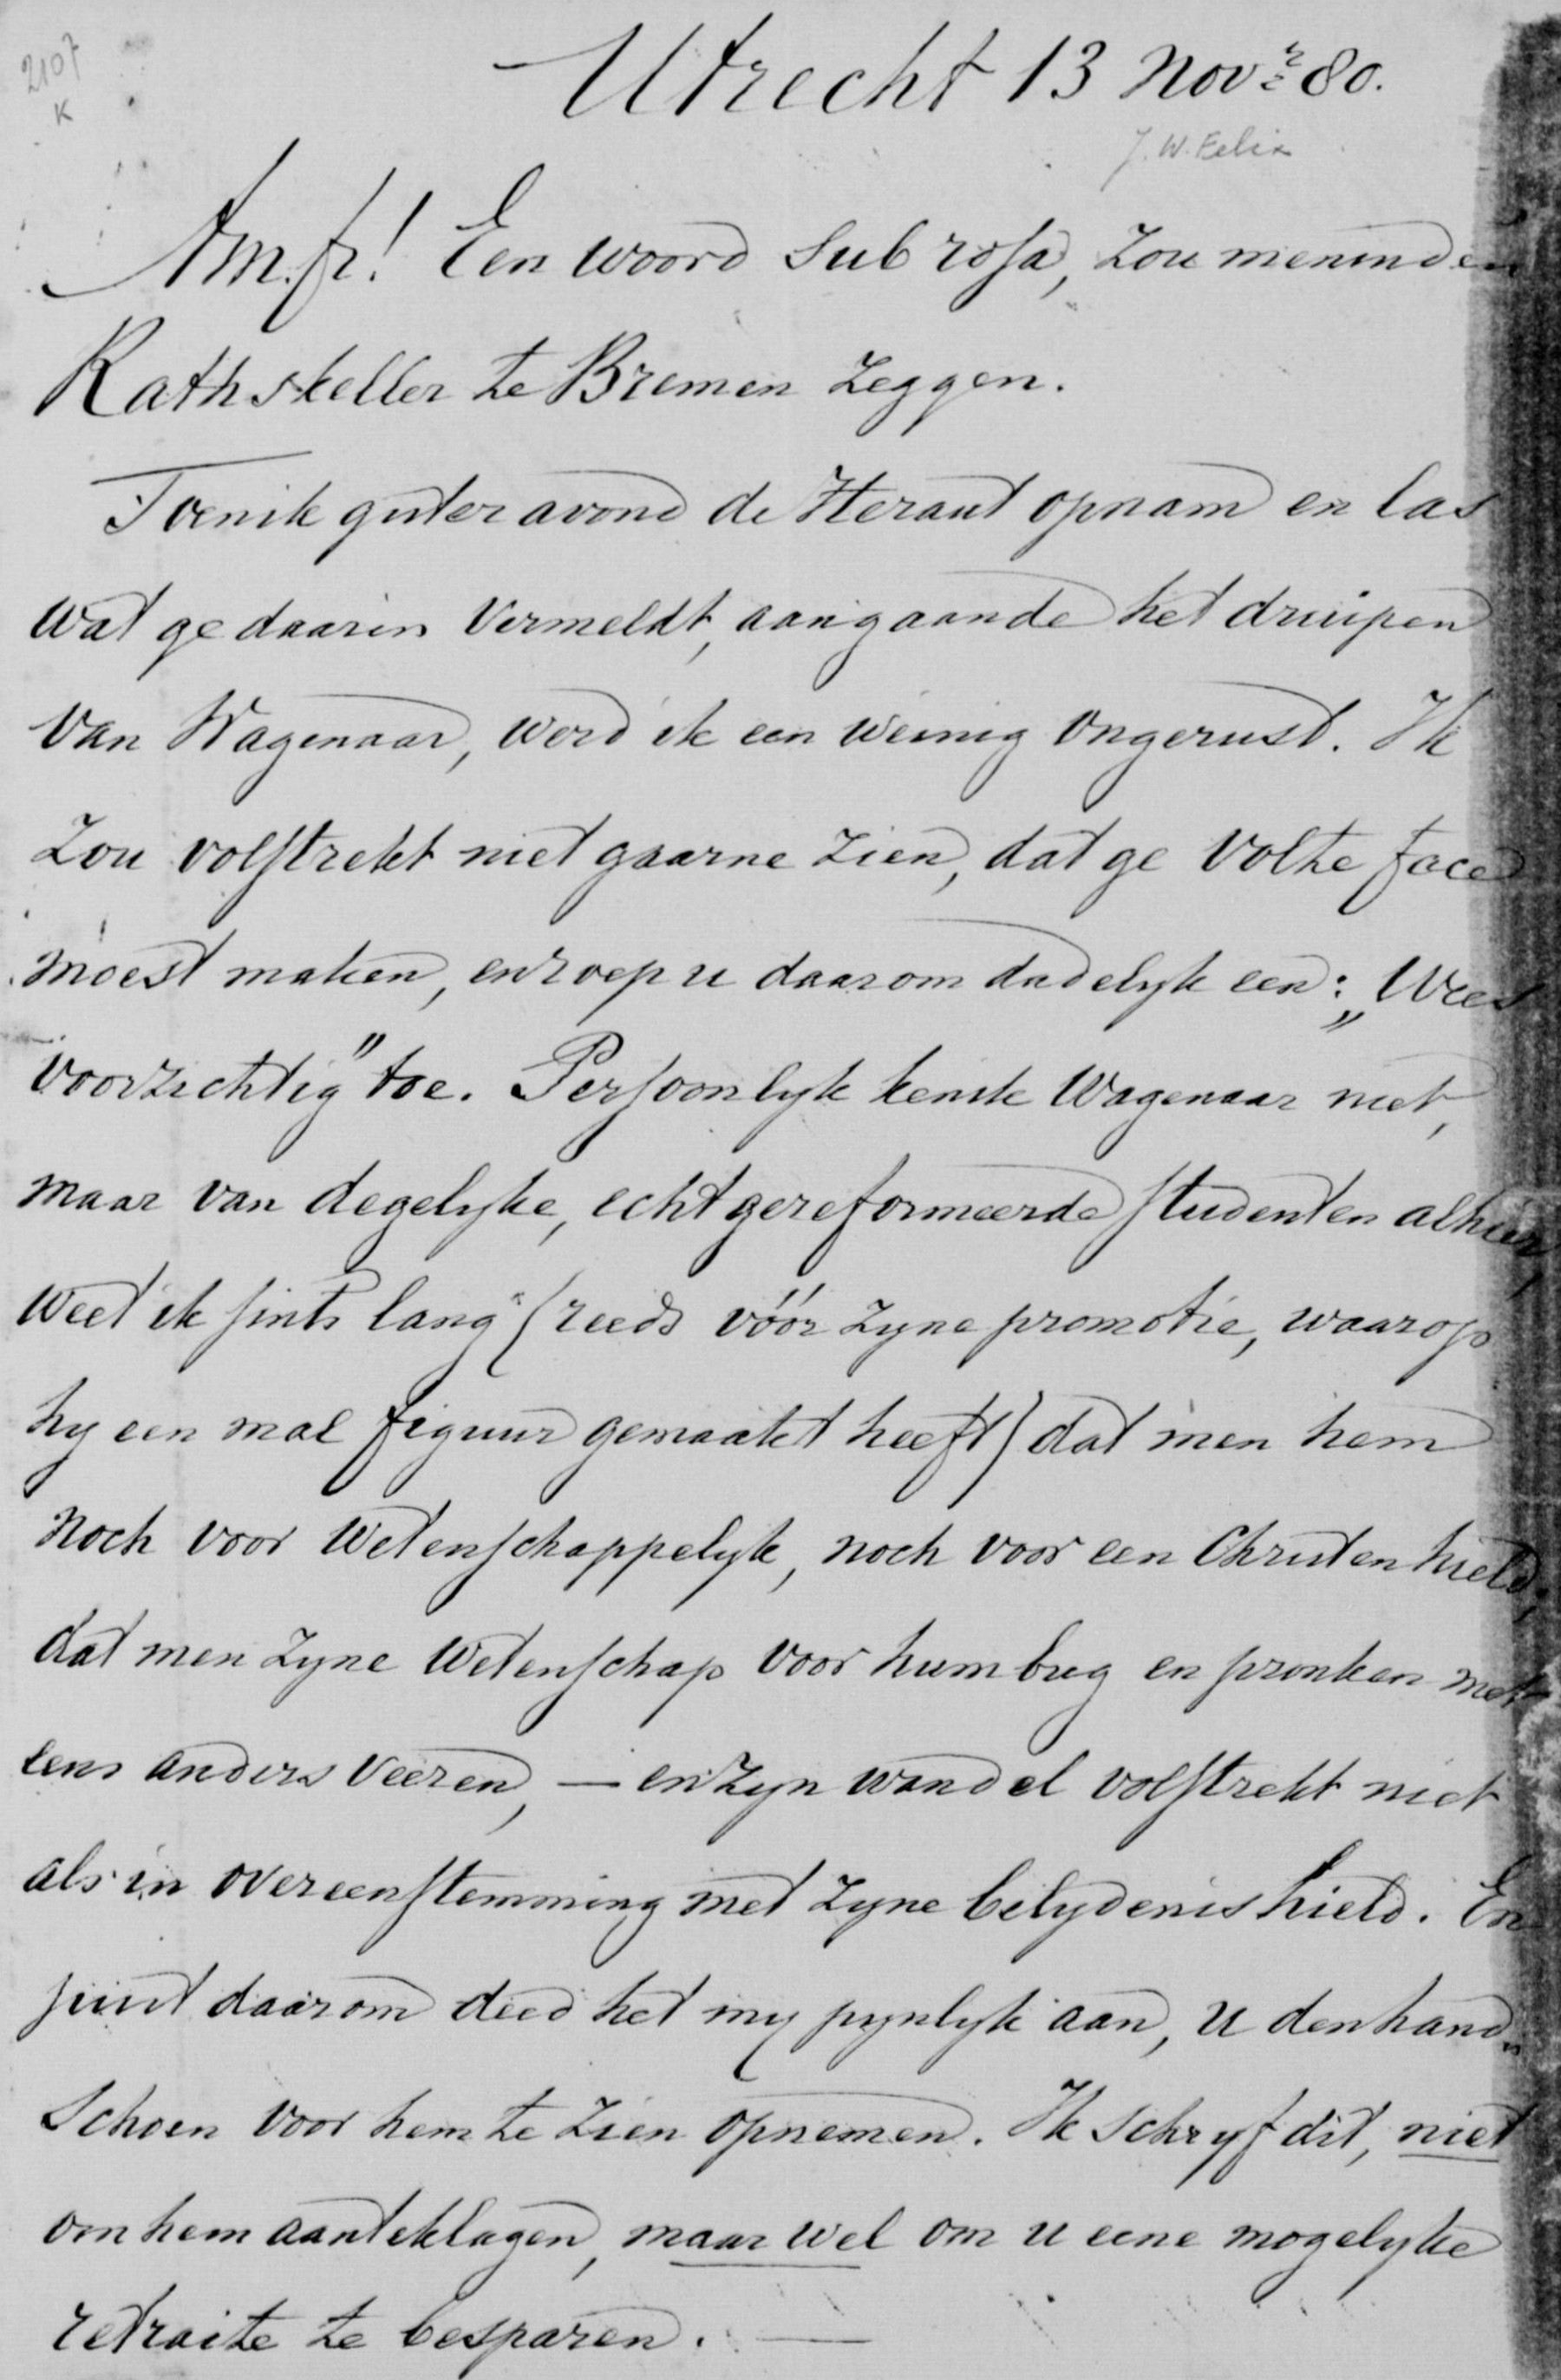 2107
K
Utrecht 13 Novr 80.
J. W. Felix
Am. fr.! Een woord sub rosa, zou men in den
Rathskeller te Bremen zeggen.
Toen ik gister avond de Heraut opnam en las
wat ge daarin vermeldt, aangaande het druipen
van Wagenaar, werd ik een weinig ongerust. Ik
zou volstrekt niet gaarne zien, dat ge volte face
moest maken, en roep u daarom dadelyk een: „Wees
voorzichtig" toe. Persoonlyk ken ik Wagenaar niet,
maar van degelyke, echt gereformeerde studenten alhier,
weet ik sints lang (reeds vóór zyne promotie, waarop
hy een mal figuur gemaakt heeft) dat men hem
noch voor wetenschappelyk, noch voor een Christen hield;
dat men zyne wetenschap voor humbug en pronken met
eens anders veeren, — en zyn wandel volstrekt niet
als in overeenstemming met zyne belydenis hield. En
juist daarom deed het my pynlyk aan, u den hand„
schoen voor hem te zien opnemen. Ik schryf dit, niet
om hem aanteklagen, maar wel om u eene mogelyke
retraite te besparen. —